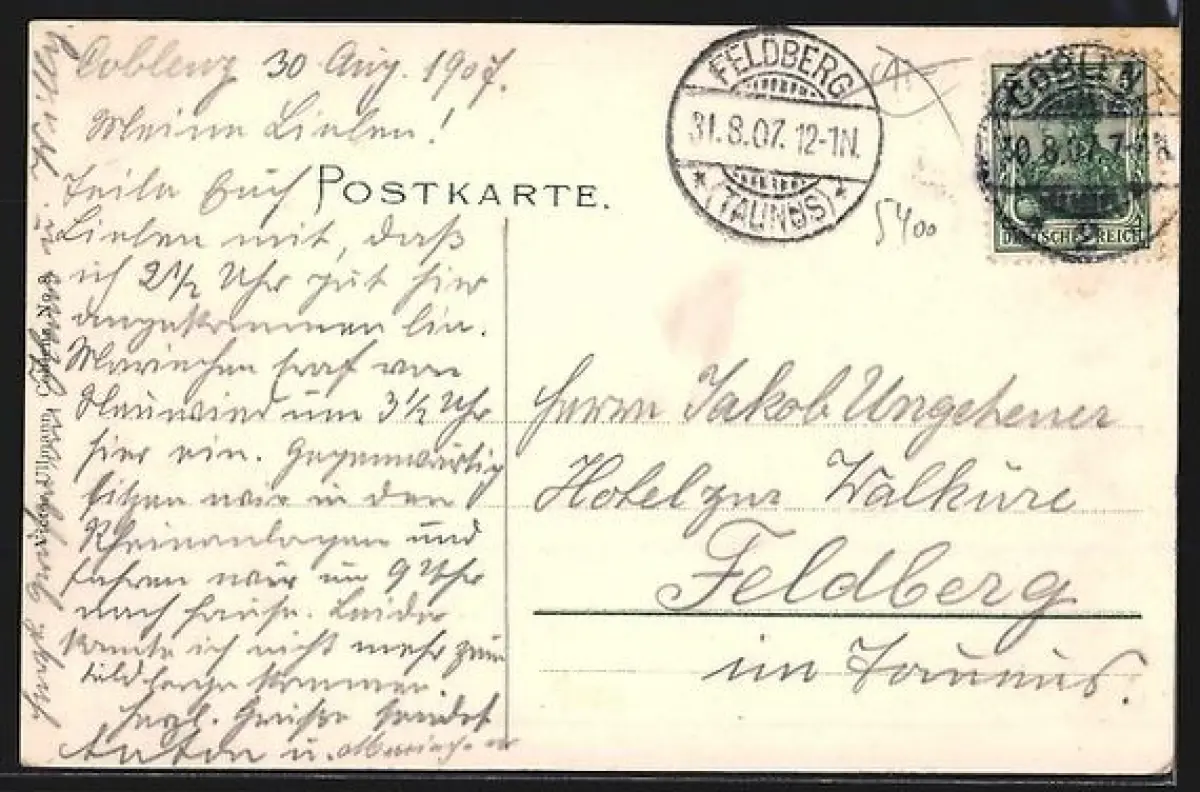 Coblenz 30 Aug. 1907.
Meine Lieben!
Teile Euch
Lieben mit, daß
ich 2½ Uhr gut hier
angekommen bin.
Mariechen traf von
Neuwied um 3½ Uhr
hier ein. Gegenwärtig
sitzen wir in den
Rheinanlagen und
fahren wir um 9 Uhr
nach Hause. Leider
konnte ich nicht mehr zum
Feldberge kommen.
Herzl. Grüße sendet
Anton u. Mariechen
POSTKARTE.
FELDBERG
31.8.07. 12-1N.
* (TAUNUS) *
5400
COBLENZ
30.8.07. 7-8N
DEUTSCHES REICH
Herrn Jakob Ungeheuer
Hotel zur Walküre
Feldberg
im Taunus.